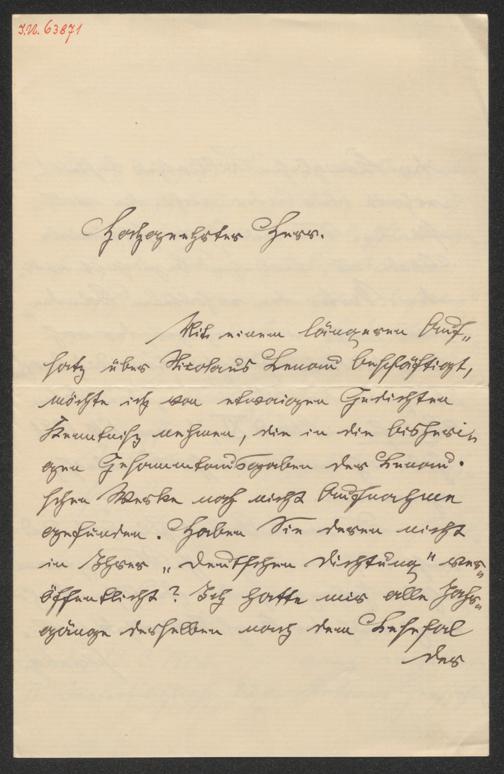 I.N. 63871
Hochgeehrter Herr.
Mit einem längeren Auf-
satz über Nicolaus Lenau beschäftigt,
möchte ich von etwaigen Gedichten
Kenntniß nehmen, die in die bisheri-
gen Gesammtausgaben der Lenau-
schen Werke noch nicht Aufnahme
gefunden. Haben Sie deren nicht
in Ihrer „Deutschen Dichtung" ver-
öffentlicht? Ich hatte mir alle Jahr-
gänge derselben nach dem Lesesaal
der